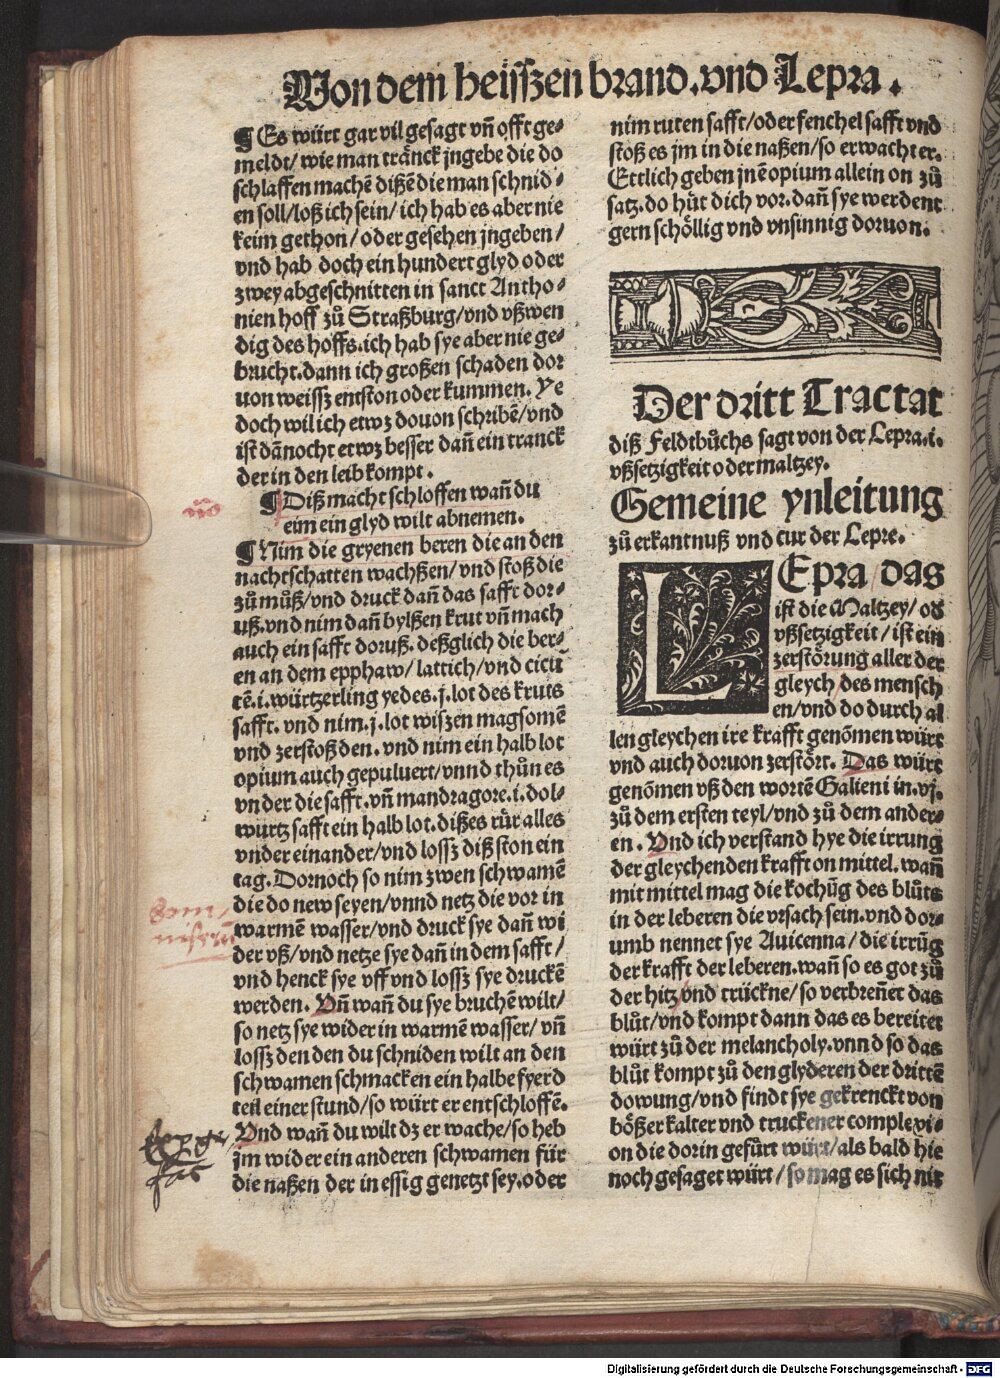 Von dem heisszen brand. vnd Lepra.
¶ Es würt gar vil gesagt vñ offt ge⸗
meldt/ wie man tränck jngebe die do
schlaffen machē dißē die man schnid⸗
en soll/loß ich sein/ ich hab es aber nie
keim gethon/ oder gesehen jngeben/
vnd hab doch ein hundert glyd oder
zwey abgeschnitten in sanct Antho⸗
nien hoff zů Straßburg/vnd vßwen
dig des hoffs. ich hab sye aber nie ge⸗
brucht. dann ich großen schaden dor
uon weissz entston oder kummen. Ye
doch wil ich etwz douon schribē/vnd
ist dānocht etwz besser dañ ein tranck
der in den leib kompt.
¶ Diß macht schloffen wañ du
eim ein glyd wilt abnemen.
¶ Nim die gryenen beren die an den
nachtschatten wachßen/vnd stoß die
zů můß/vnd druck dañ das safft dor⸗
uß. vnd nim dañ bylßen krut vñ mach
auch ein safft doruß. deßglich die ber⸗
en an dem epphaw/ lattich/vnd cicu
tē.i.würtzerling yedes.j.lot des kruts
safft. vnd nim.j.lot wiszen magsomē
vnd zerstoß den. vnd nim ein halb lot
opium auch gepuluert/vnnd thůn es
vnder die safft. vñ mandragore.i.dol⸗
wurtz safft ein halb lot. dißes rür alles
vnder einander/vnd lossz diß ston ein
tag. Dornoch so nim zwen schwamē
die do new seyen/vnnd netz die vor in
warmē wasser/vnd druck sye dañ wi
der vß/vnd netze sye dañ in dem safft/
vnd henck sye vff vnd lossz sye druckē
werden. Vñ wañ du sye bruchē wilt/
so netz sye wider in warmē wasser/ vñ
lossz den den du schniden wilt an den
schwamen schmacken ein halbe fyerd
teil einer stund/so würt er entschloffē.
Vnd wañ du wilt dz er wache/so heb
jm wider ein anderen schwamen für
die naßen der in essig genetzt sey. oder
nim ruten safft/oder fenchel safft vnd
stoß es jm in die naßen/so erwacht er.
Ettlich geben jnē opium allein on zů
satz. do hüt dich vor. dañ sye werdent
gern schöllig vnd vnsinnig doruon.
Der dritt Tractat
diß Feldtbůchs sagt von der Lepra.i.
vßsetzigkeit oder maltzey.
Gemeine ynleitung
zů erkantnuß vnd cur der Lepre.
LEpra das
ist die Maltzey/ od
vßsetzigkeit/ ist ein
zerstörung aller der
gleych des mensch
en/vnd do durch al
len gleychen ire krafft genōmen würt
vnd auch doruon zerstört. Das würt
genōmen vß den wortē Galieni in.vj.
zů dem ersten teyl/vnd zů dem ander⸗
en. Vnd ich verstand hye die irrung
der gleychenden krafft on mittel. wañ
mit mittel mag die kochūg des blůts
in der leberen die vrsach sein. vnd dor⸗
umb nennet sye Auicenna/ die irrūg
der krafft der leberen. wañ so es got zů
der hitz vnd trückne/so verbreñet das
blůt/vnd kompt dann das es bereitet
würt zů der melancholy. vnnd so das
blůt kompt zů den glyderen der drittē
dowung/vnd findt sye gekrenckt von
bößer kalter vnd truckener complexi⸗
on die dorin gefürt würt/als bald hie
noch gesaget würt/so mag es sich nit
Digitalisierung gefördert durch die Deutsche Forschungsgemeinschaft - DFG